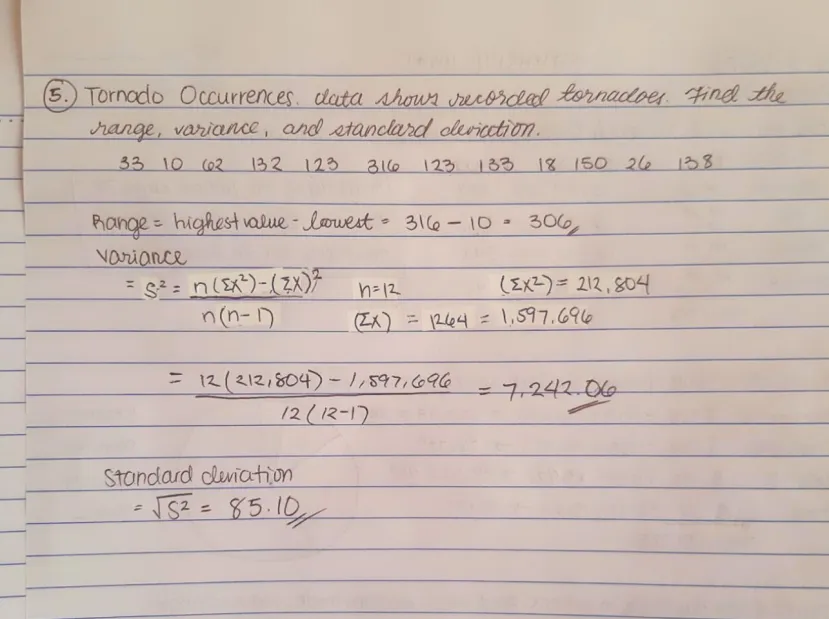 5. Tornado Occurrences. data shows recorded tornadoes. Find the
range, variance, and standard deviation.
33 10 62 132 123 316 123 133 18 150 26 138
Range = highest value - lowest = 316 - 10 = 306
Variance
= S² = n(Σx²)-(Σx)² / n(n-1) n=12 (Σx²) = 212,804
(Σx) = 1264 = 1,597,696
= 12(212,804) - 1,597,696 / 12(12-1) = 7,242.06
Standard deviation
= √S² = 85.10